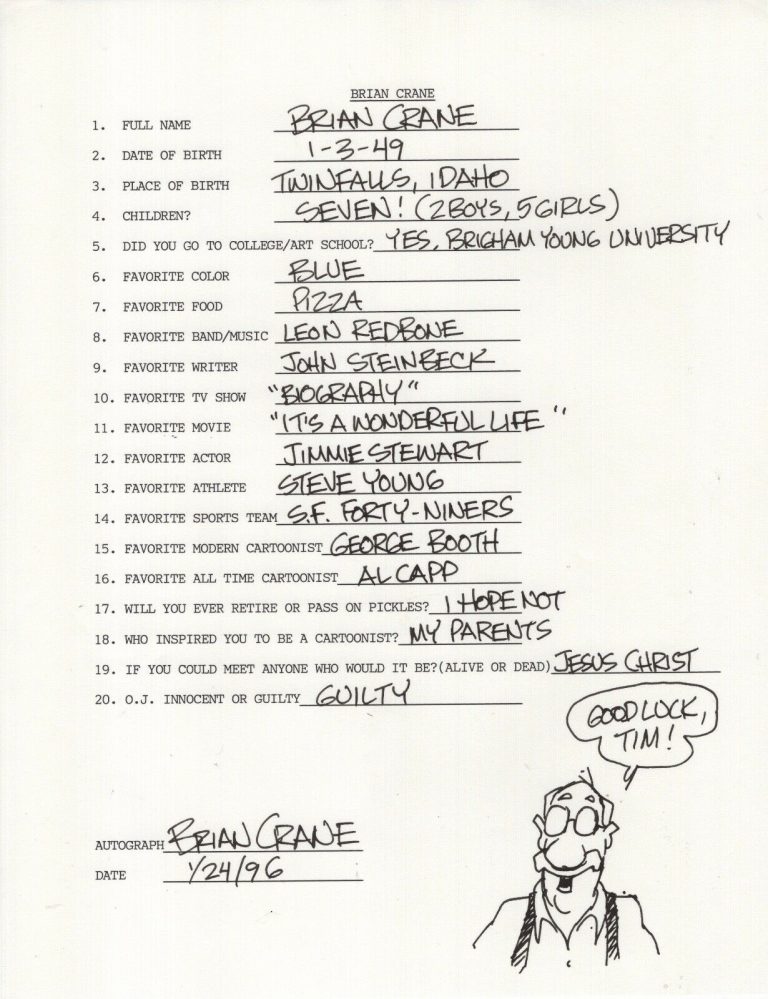 BRIAN CRANE
1. FULL NAME BRIAN CRANE
2. DATE OF BIRTH 1-3-49
3. PLACE OF BIRTH TWINFALLS, IDAHO
4. CHILDREN? SEVEN! (2 BOYS, 5 GIRLS)
5. DID YOU GO TO COLLEGE/ART SCHOOL? YES, BRIGHAM YOUNG UNIVERSITY
6. FAVORITE COLOR BLUE
7. FAVORITE FOOD PIZZA
8. FAVORITE BAND/MUSIC LEON REDBONE
9. FAVORITE WRITER JOHN STEINBECK
10. FAVORITE TV SHOW "BIOGRAPHY"
11. FAVORITE MOVIE "IT'S A WONDERFUL LIFE"
12. FAVORITE ACTOR JIMMIE STEWART
13. FAVORITE ATHLETE STEVE YOUNG
14. FAVORITE SPORTS TEAM S.F. FORTY-NINERS
15. FAVORITE MODERN CARTOONIST GEORGE BOOTH
16. FAVORITE ALL TIME CARTOONIST AL CAPP
17. WILL YOU EVER RETIRE OR PASS ON PICKLES? I HOPE NOT
18. WHO INSPIRED YOU TO BE A CARTOONIST? MY PARENTS
19. IF YOU COULD MEET ANYONE WHO WOULD IT BE?(ALIVE OR DEAD) JESUS CHRIST
20. O.J. INNOCENT OR GUILTY GUILTY
GOOD LUCK,
TIM!
AUTOGRAPH BRIAN CRANE
DATE 1/24/96